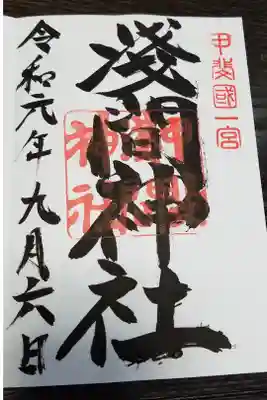 甲斐國一宮
淺間神社
神社
令和元年九月六日